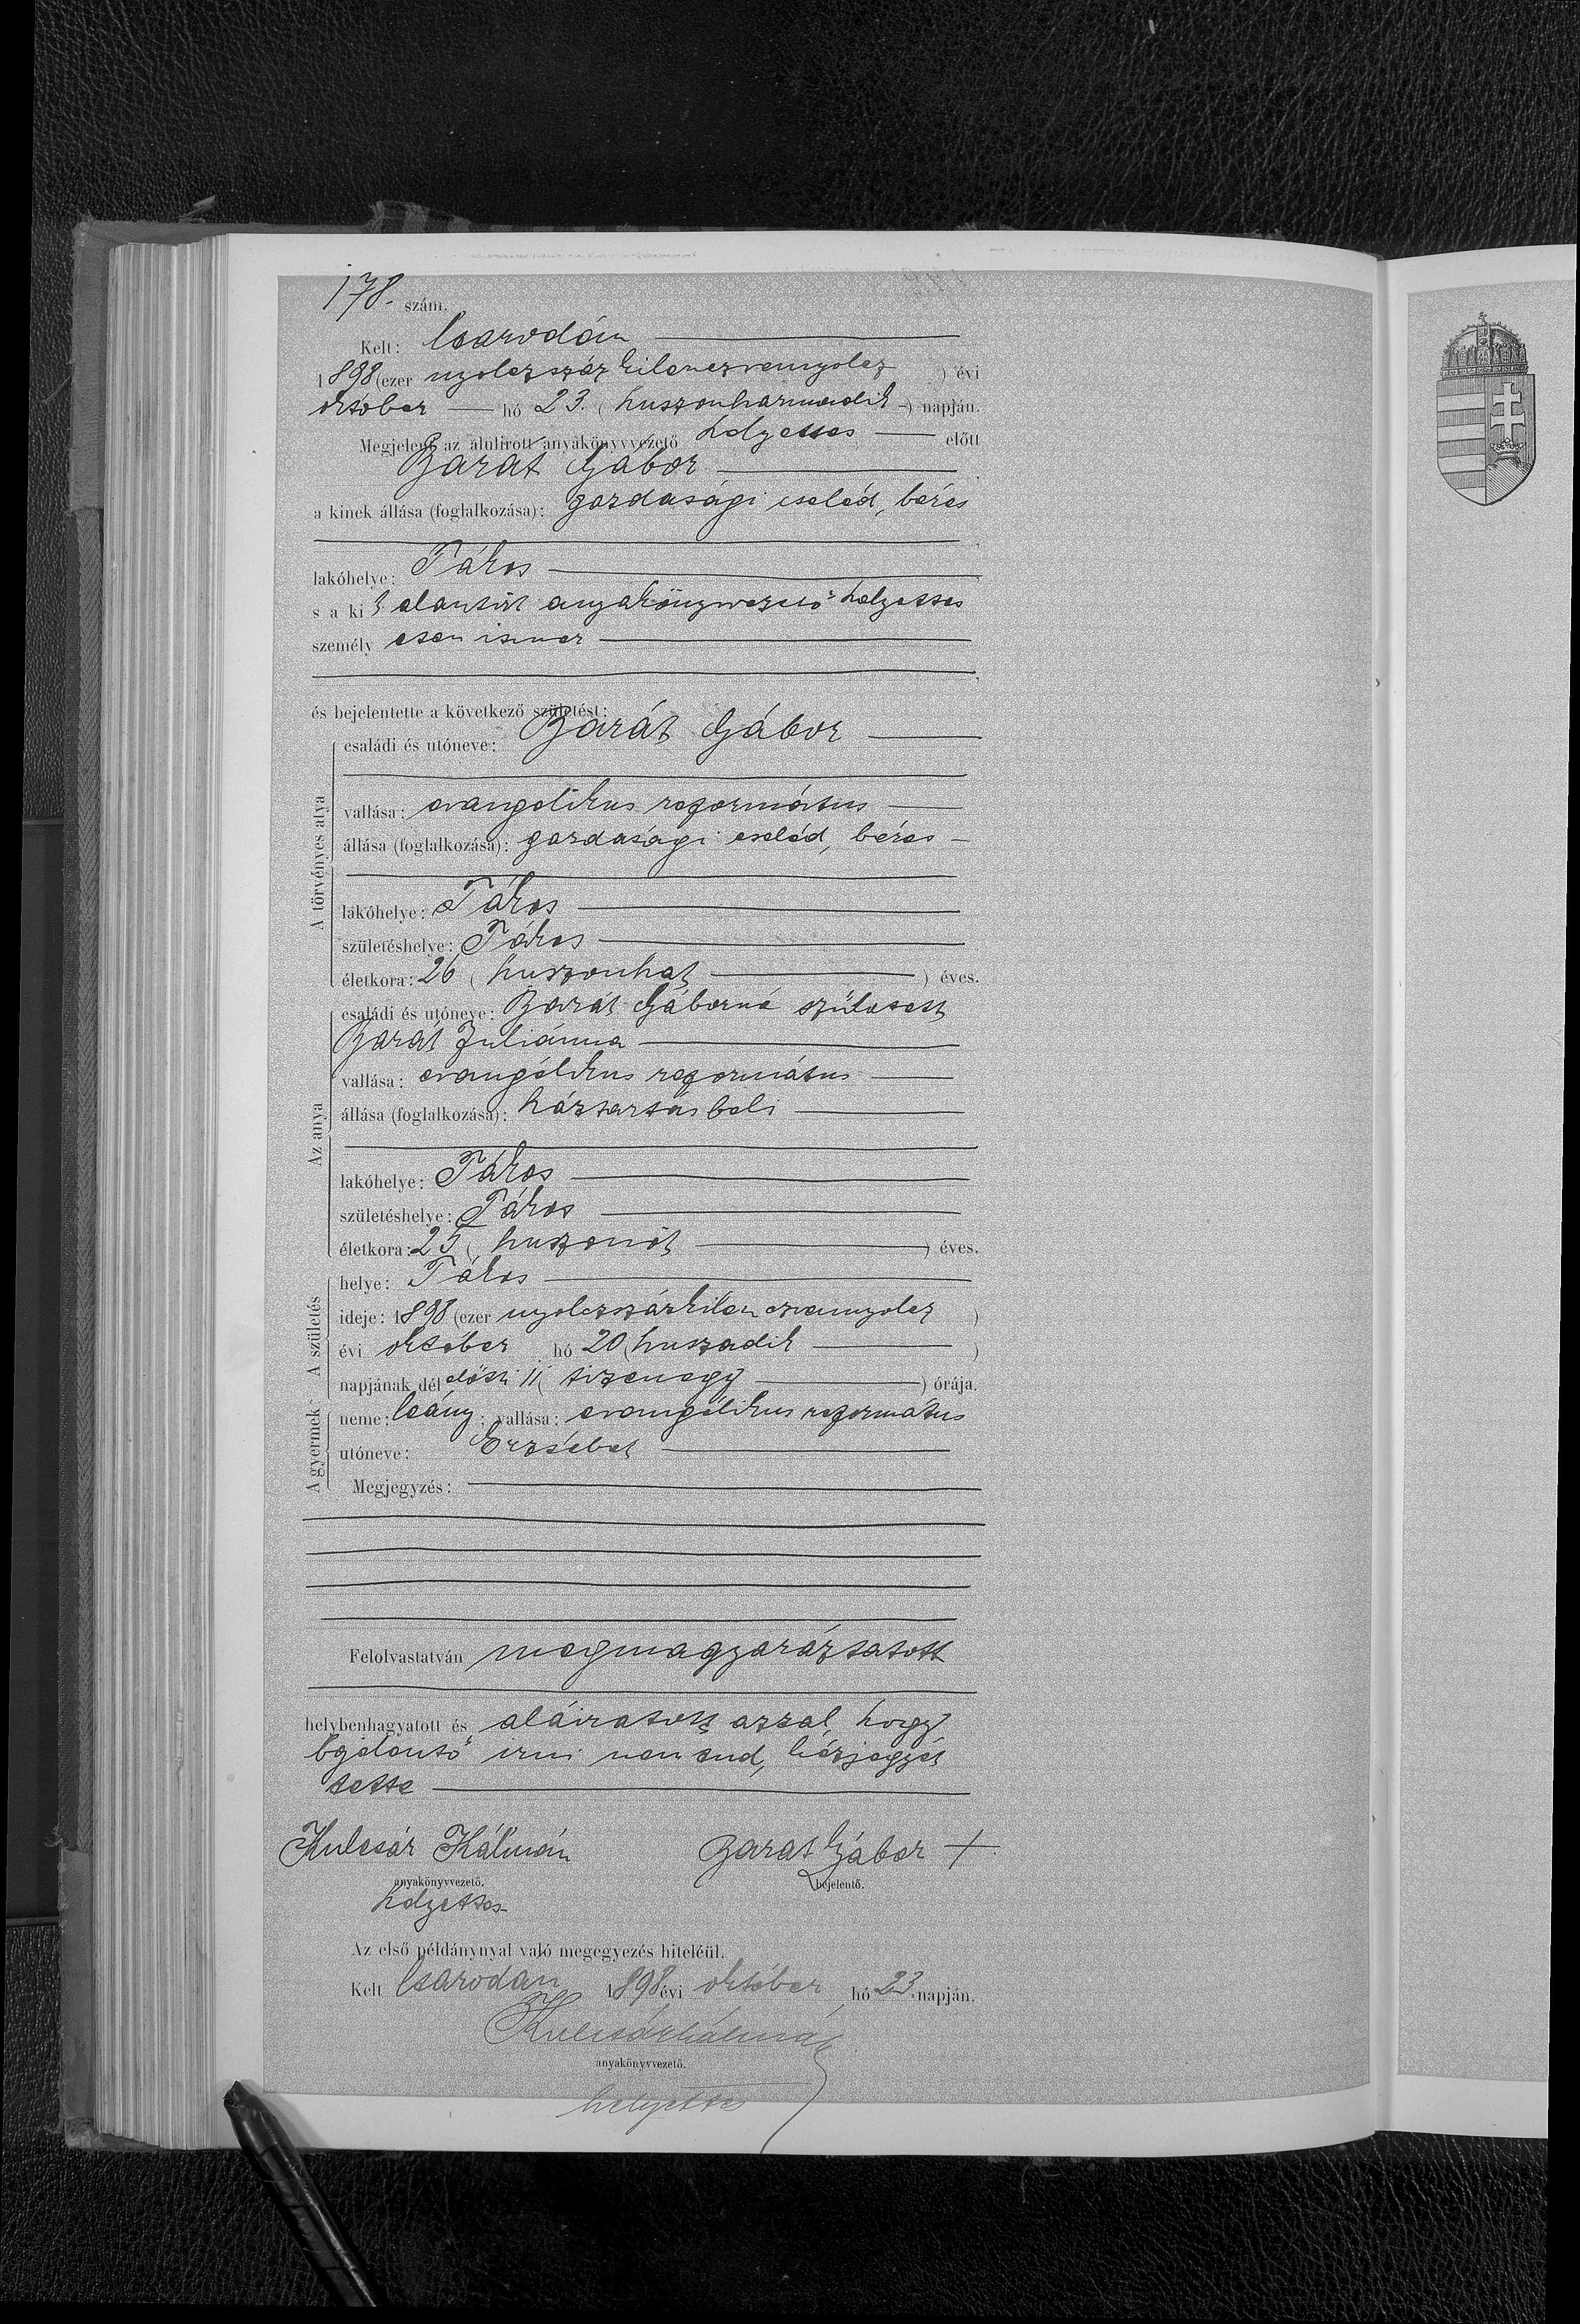 178. szám.
Kelt: Csarodán
1898 (ezer nyolczszáz kilenczvennyolcz) évi
október hó 23. (huszonharmadik) napján.
Megjelent az alulirott anyakönyvvezető helyettes előtt
Barát Gábor
a kinek állása (foglalkozása): gazdasági cseléd, béres
lakóhelye: Tákos
s a ki t alantirt anyakönyvvezető helyettes
személyesen ismer
és bejelentette a következő születést:
A törvényes atya
családi és utóneve: Barát Gábor
vallása: evangelikus református
állása (foglalkozása): gazdasági cseléd, béres
lakóhelye: Tákos
születéshelye: Tákos
életkora: 26 (huszonhat) éves.
Az anya
családi és utóneve: Barát Gáborné született
Barát Juliánna
vallása: evangélikus református
állása (foglalkozása): háztartásbeli
lakóhelye: Tákos
születéshelye: Tákos
életkora: 25 (huszonöt) éves.
A születés
helye: Tákos
ideje: 1898 (ezer nyolczszázkilenczvennyolcz)
évi október hó 20 (huszadik)
napjának délelőtti 11 (tizenegy) órája.
A gyermek
neme: leány; vallása: evangélikus református
utóneve: Erzsébet
Megjegyzés:
Felolvastatván megmagyaráztatott
helybenhagyatott és aláiratott azzal, hogy
bejelentő irni nem tud, kézjegyét
tette
Kulcsár Kálmán Barat Gábor +
anyakönyvvezető. bejelentő.
helyettes
Az első példánynyal való megegyezés hiteléül.
Kelt Csarodan 1898 évi október hó 23. napján.
Kulcsár Kálmán
anyakönyvvezető.
helyettes